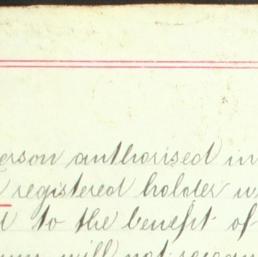 person authorised in
registered holder
to the benefit of
will not